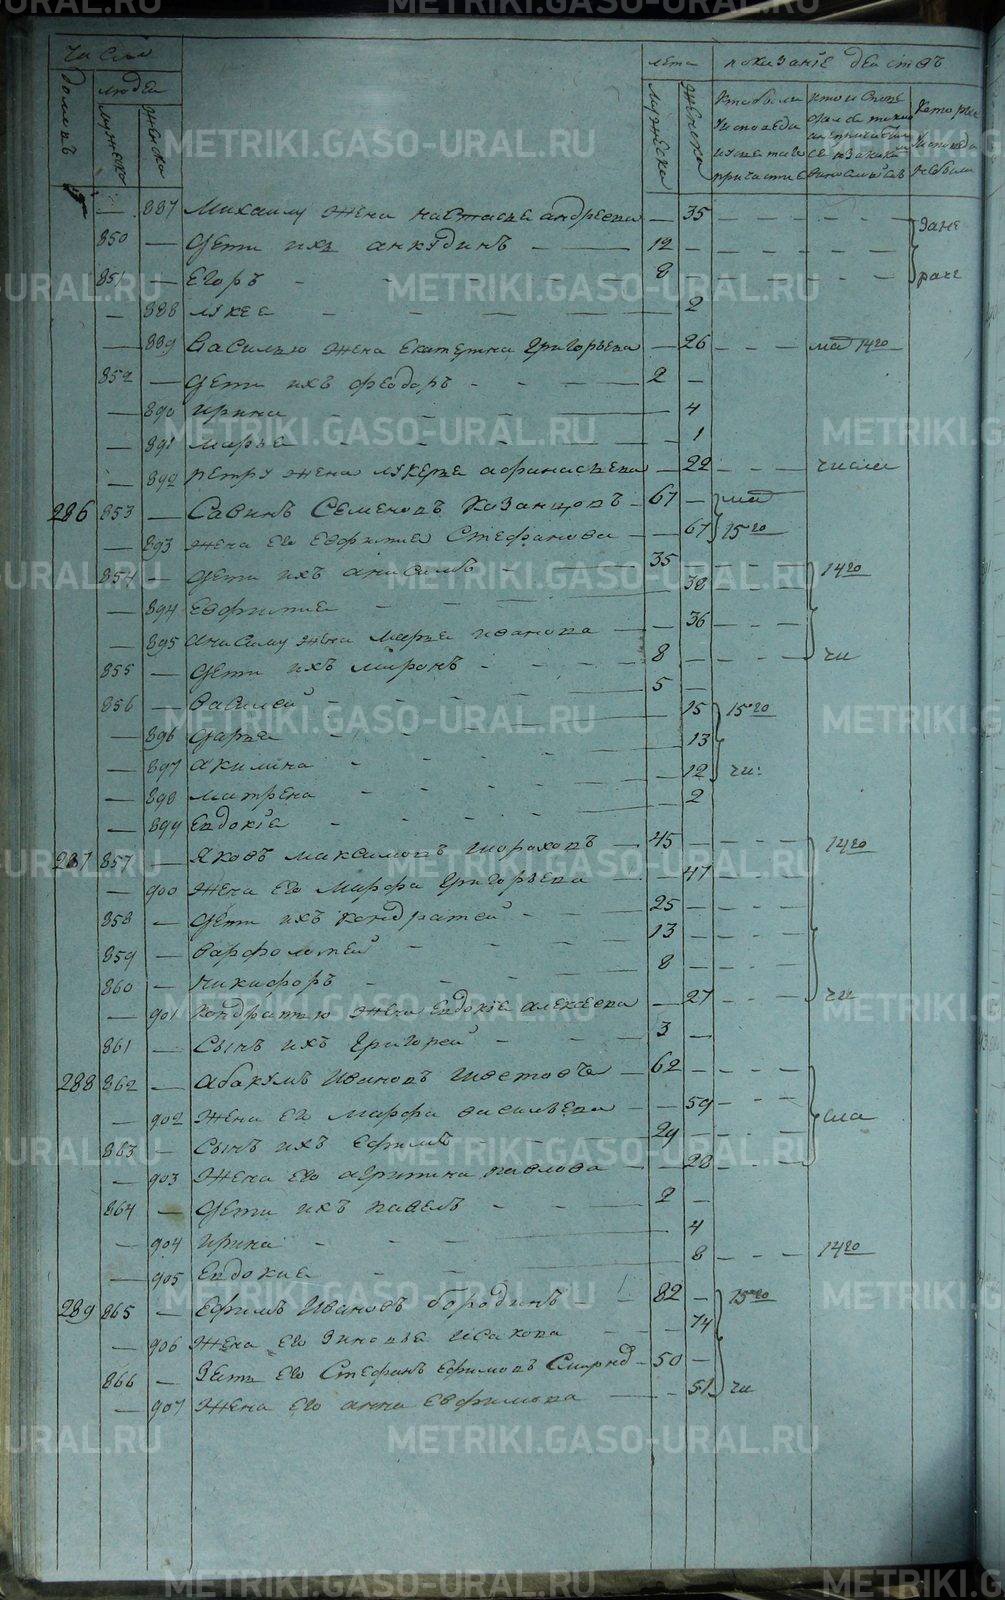 числа
лѣта показанiе дѣйствъ
домовъ людей
мужеска женска
мужеска женска
кто были
у исповеди
и у святаго
причастiя
— 887 Михаилу жена настасья андреева — 35
850 — дети ихъ анкудинъ 12 —
851 — Егоръ 8 —
— 888 лукея — 2
— 889 Василью жена Екатерина Григорьева — 26 маi 14го
852 — дети ихъ феодоръ 2 —
— 890 ирина — 4
— 891 марья — 1
— 892 петру жена лукерья афанасьева — 22 числа
286 853 — Савинъ Семеновъ Казанцовъ 67 — маi
— 893 жена его евфимия Стефанова — 67 15го
854 — дети ихъ анисимъ 35 — 14го
— 894 Евфимия — 38
— 895 анисиму жена марья иванова — 36
855 — дети ихъ миронъ 8 — чи
856 — василей 5 —
— 896 дарья — 15 15го
— 897 акилина — 13
— 898 матрена — 12 чи:
— 899 Евдокiя — 2
287 857 — Яковъ максимовъ шороховъ 45 — 14го
— 900 жена его марфа Григорьева — 47
858 — дети ихъ кондратей 25 —
859 — варфоломей 13 —
860 — никифоръ 8 —
— 901 кондратью жена евдокiя алексеева — 27 чи
861 — сынъ ихъ Григорей 3 —
288 862 — абакумъ Ивановъ шестовъ 62 —
— 902 жена его марфа васильева — 59 сла
863 — сынъ ихъ ефимъ 29 —
— 903 жена его агрипина павлова — 28
864 — дети ихъ павелъ 2 —
— 904 ирина — 4
— 905 Евдокия — 8 14го
289 865 — Ефимъ Ивановъ бородинъ 82 — 15го
— 906 жена его Зиновья исакова — 74
866 — Зять его Стефанъ ефимовъ 50 —
— 907 жена его анна евфимова — 51 чи
METRIKI.GASO-URAL.RU